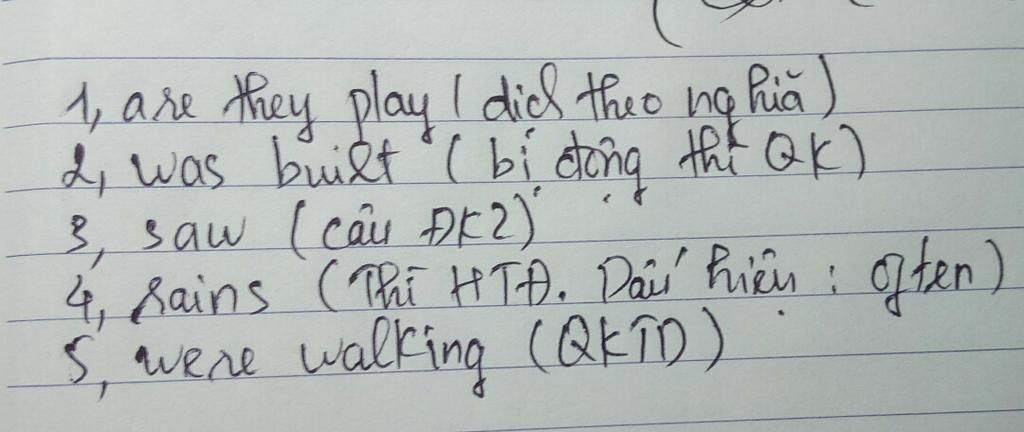 1, are they play (dịch theo nghĩa)
2, was built (bị động thì QK)
3, saw (câu ĐK2)
4, rains (Thì HTĐ. Dấu hiệu : often)
5, were walking (QKTD)